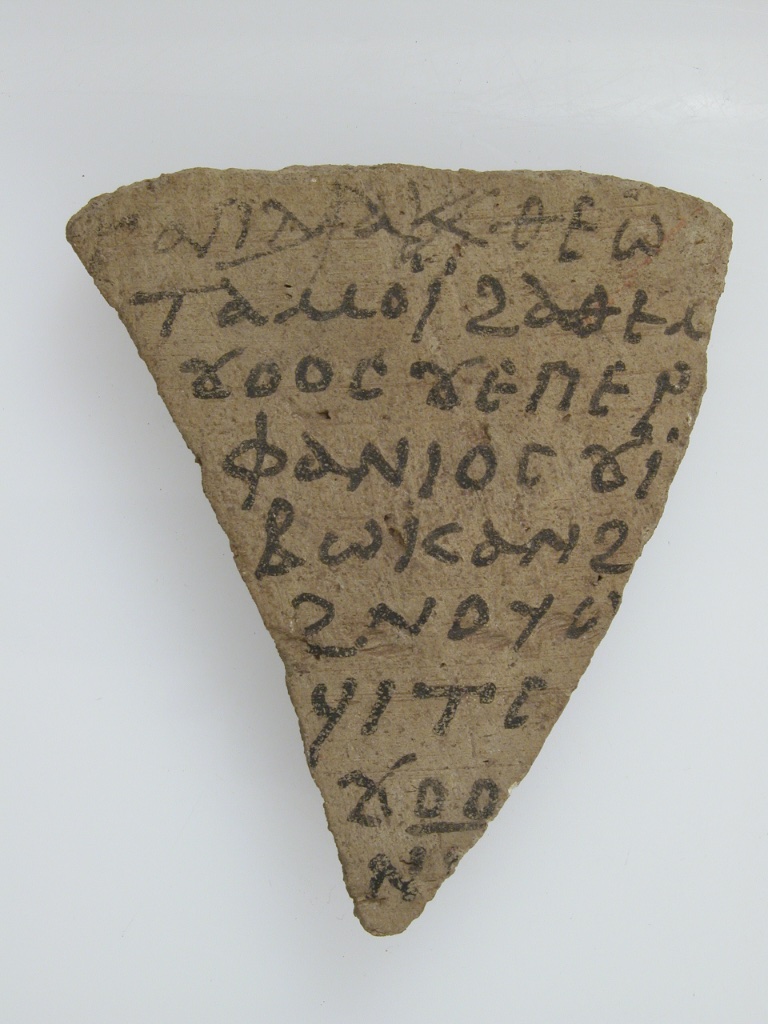 ⲑⲉⲱ
ⲧⲁⲙⲟⲓ̈ϩⲁⲑⲉ
ϫⲟⲟⲥϫⲉⲡⲉⲣ
ⲫⲁⲛⲓⲟⲥϫⲓ̈
ⲃⲱⲕⲁⲛϩ
ϩⲛⲟⲩⲱ
ϥⲓⲧⲥ
ϫⲟⲟ
ⲛ